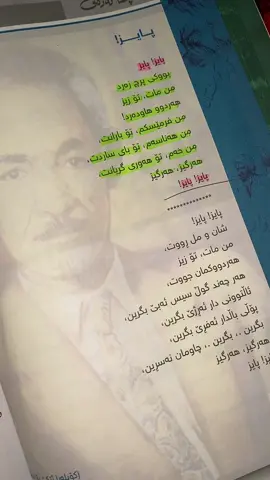 پایز!
پایز! پایز!
بووکی پرچ زەرد
من مات، تۆ زیز
هەردوو هاودەرد!
من فرمێسکم، تۆ بارانت،
من هەناسەم، تۆ بای ساردت،
من خەم، تۆ هەوری گریانت،
هەرگیز، هەرگیز
پایز! پایز!
**************
پایز! پایز!
شان و مل ڕووت،
من مات، تۆ زیز
هەردووکمان جووت،
هەر چەند گوڵ سیس ئەبێ بگرین،
ئاڵتوونی دار ئەڕژێ بگرین،
پۆلی باڵدار ئەفڕێ بگرین،
بگرین .. بگرین .. چاومان نەسڕین،
هەرگیز، هەرگیز
پایز! پایز